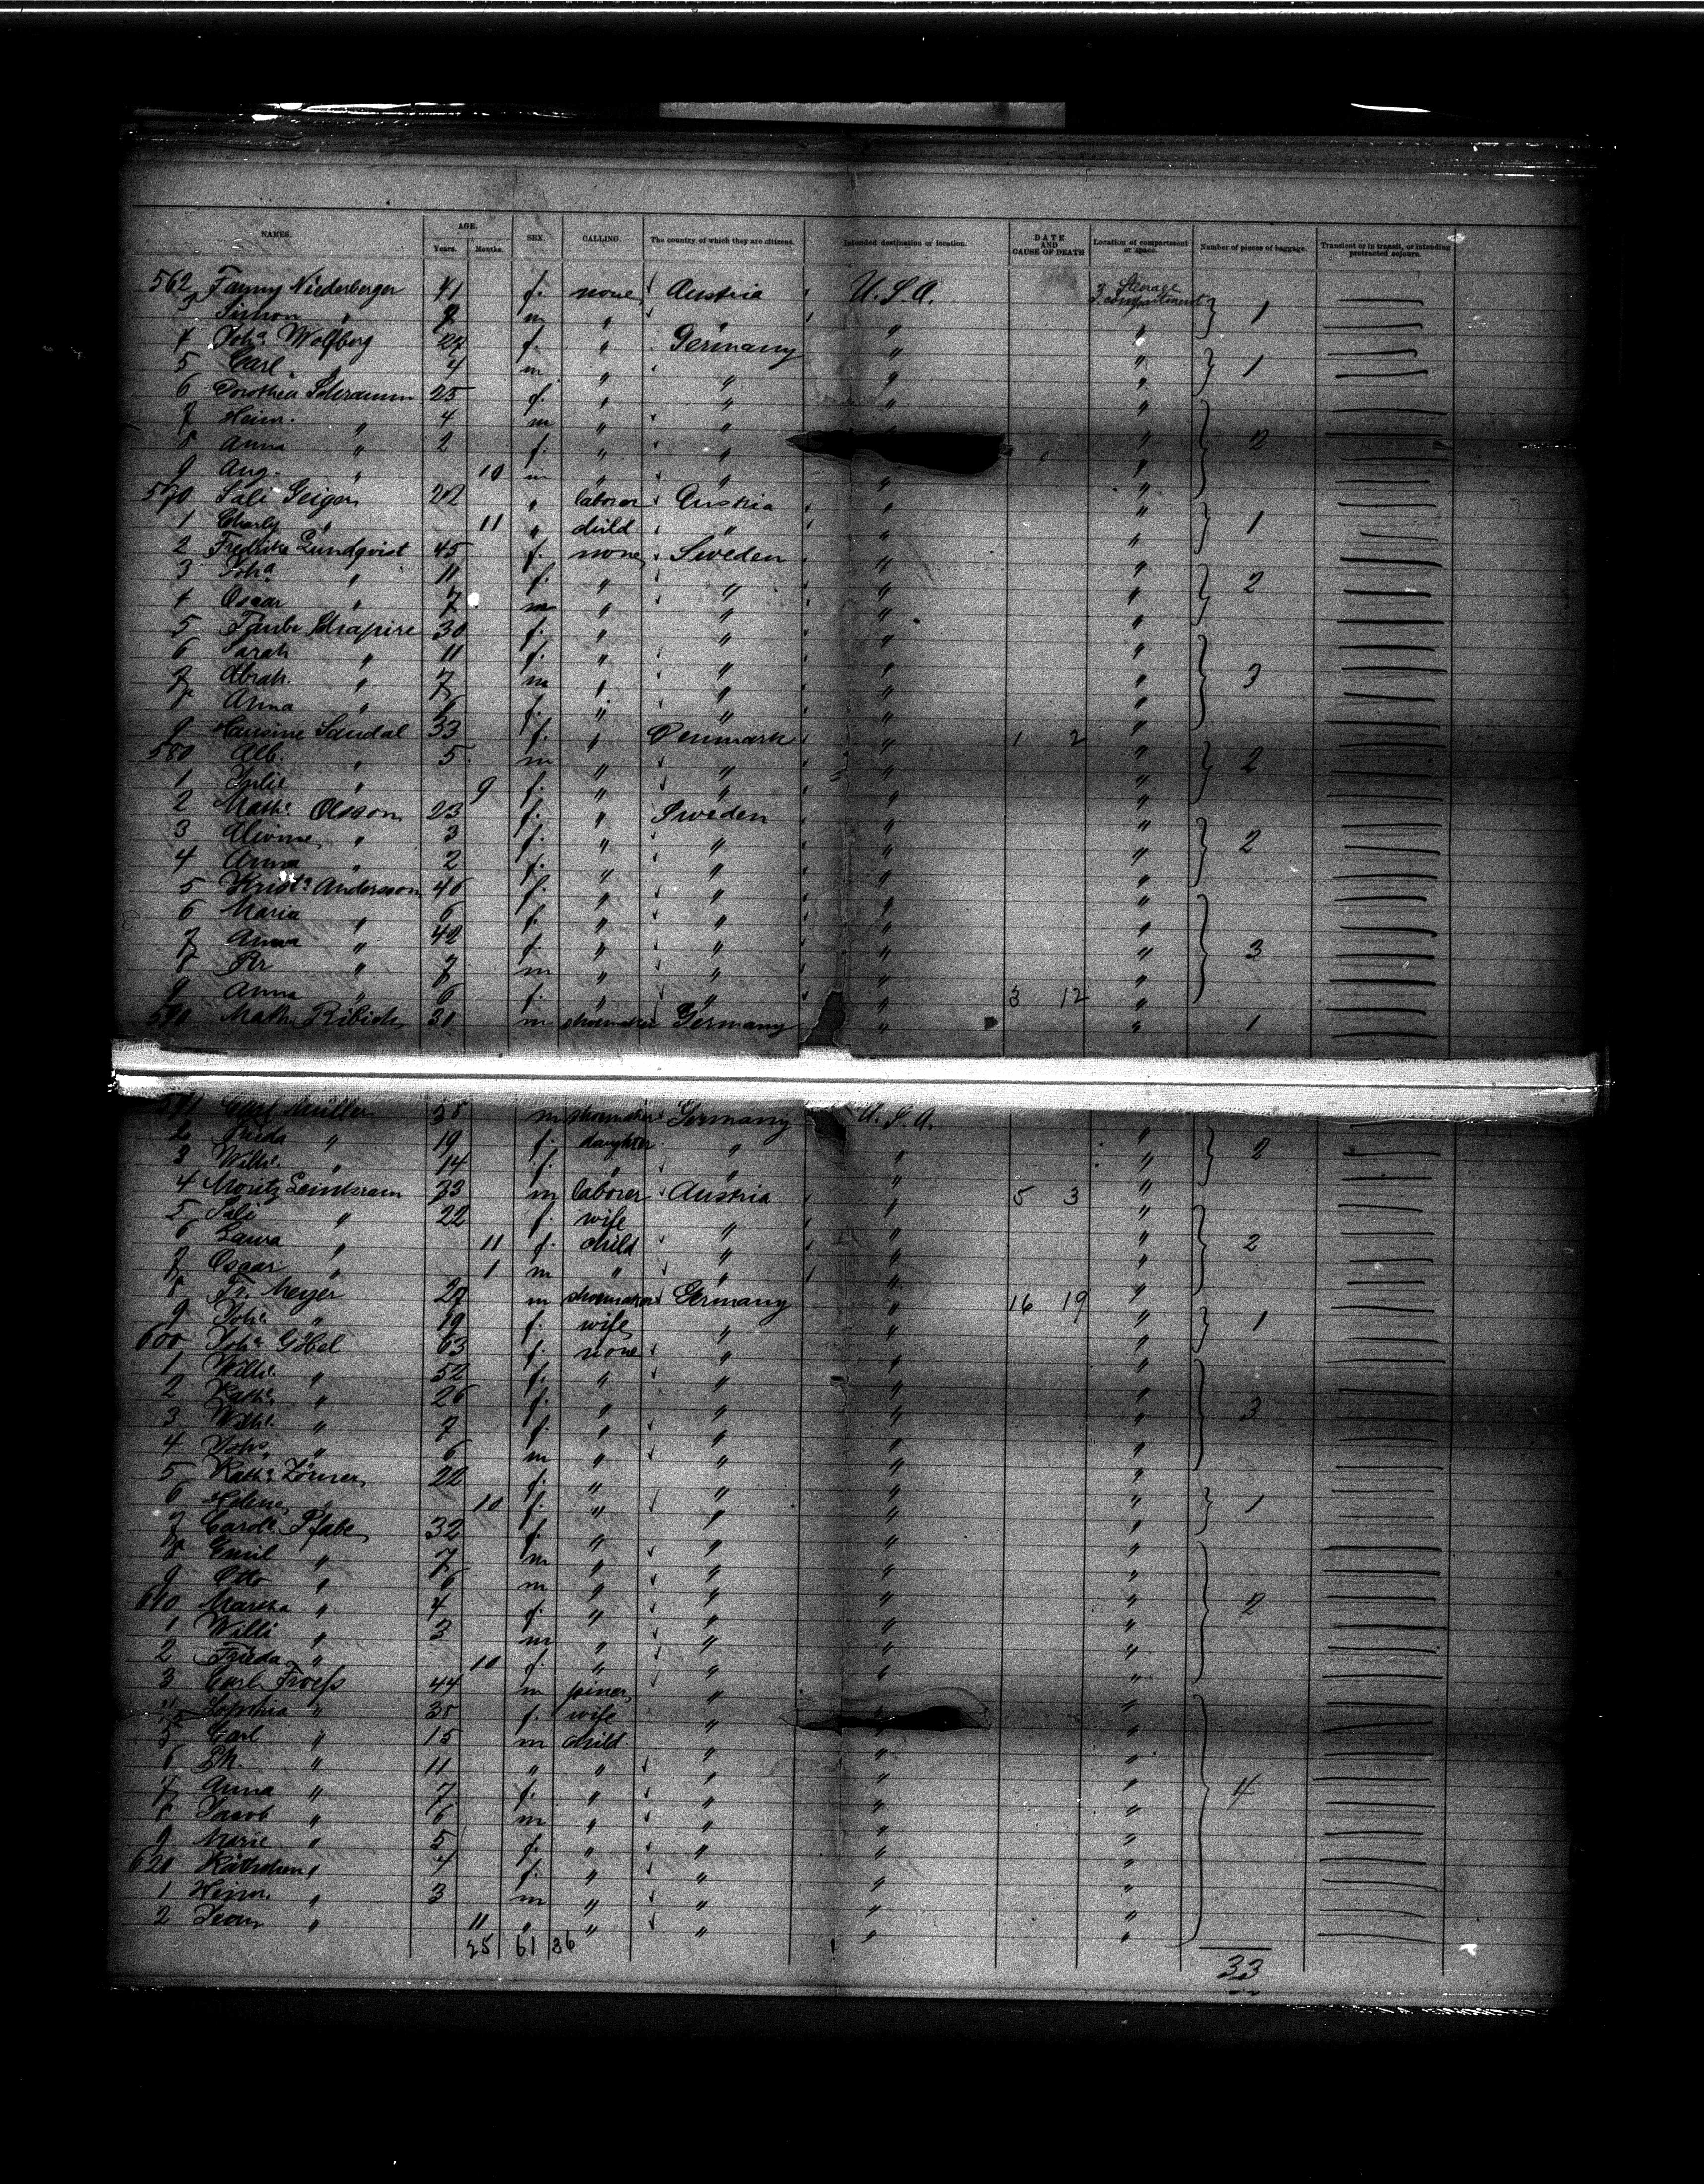 NAMES. AGE. Years. Months. SEX. CALLING. The country of which they are citizens. Intended destination or location. DATE AND CAUSE OF DEATH Location of compartment or space. Number of pieces of baggage. Transient or in transit, or intending protracted sojourn.
562 Fanny Niederberger 41 f. none Austria U.S.A. 3 Steerage 3 compartment
3 Simon " m " " " 1
4 Joha Wolfberg f. " Germany " "
5 Carl " 4 m " " " " 1
6 Dorothea Schramm 25 f. " " " "
7 Heinr. " 4 m " " "
8 Anna " 2 f. " " " 2
9 Aug. " 10 m " " " "
570 Sali Geiger 22 " laborer Austria " "
1 Charly " 11 " child " " " 1
2 Fredrika Lundqvist 45 f. none Sweden " "
3 Joha " 11 f. " " " " 2
4 Oscar " 7 m " " " "
5 Taube Schapire 30 f. " " " "
6 Sarah " 11 f. " " " "
7 Abrah. " 7 m " " " " 3
8 Anna " 6 f. " " " "
9 Hansine Sandal 33 f. " Denmark " 1 2 "
580 Alb. " 5 m " " " " 2
1 Julie " 9 f. " " " "
2 Mathe Olsson 23 f. " Sweden " "
3 " 3 f. " " " " 2
4 Anna " 2 f. " " " "
5 Andersson 46 f. " " " "
6 Maria " 6 f. " " " "
7 Anna " 42 f. " " " " 3
8 Pr " 7 m " " " "
9 Anna " 6 f. " " " 3 12 "
590 Math. Ribich m shoemaker Germany " " 1
591 Carl Müller 58 m shoemaker Germany U.S.A.
2 Frieda " 19 f. daughter " " " 2
3 Wilhe " 14 f. " " " "
4 Moritz Leinkram 33 m laborer Austria " 5 3 "
5 Sali " 22 f. wife " " "
6 Laura " 11 f. child " " " 2
7 Oscar " 1 m " " " "
8 Fr. Meyer 27 m shoemaker Germany " 16 19 "
9 Johe " 19 f. wife " " " 1
600 Joha Göbel 63 f. none " " "
1 Wilhe " 52 f. " " " "
2 Kathe " 26 f. " " " " 3
3 Wilhe " 7 f. " " " "
4 Johs " 6 m " " " "
5 Katha 22 f. " " " "
6 Helene " 10 f. " " " " 1
7 Carole Pfabe 32 f. " " " "
8 Emil " 7 m " " " "
9 Otto " 6 m " " " "
610 Martha " 4 f. " " " " 2
1 Willi " 3 m " " " "
2 Frieda " 10 f. " " " "
3 Carl Froess 44 m joiner " " "
4 Sophia " 38 f. wife " " "
5 Carl " 15 m child " " "
6 Ph. " 11 " " " " "
7 Anna " 7 f. " " " " 4
8 Jacob " 6 m " " " "
9 Marie " 5 f. " " " "
620 Käthchen " 4 f. " " " "
1 Heinr. " 3 m " " " "
2 Leon " 11 " " " " "
25 61 36 33